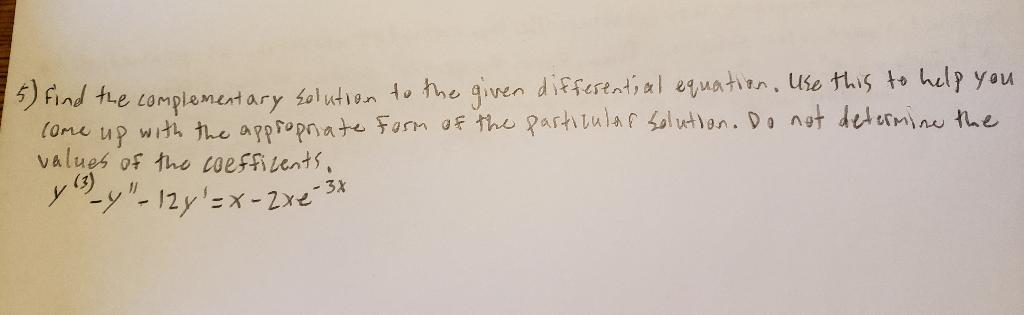 5) Find the complementary solution to the given differential equation. Use this to help you
come up with the appropriate form of the particular solution. Do not determine the
values of the coefficents.
y⁽³⁾-y"-12y'=x-2xe⁻³ˣ